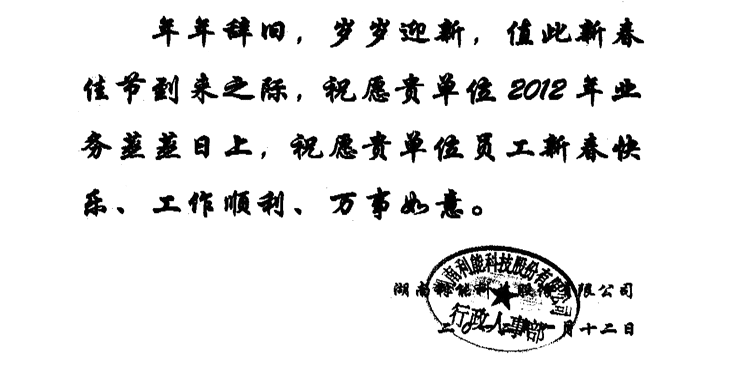 年年辞旧，岁岁迎新，值此新春
佳节到来之际，祝愿贵单位2012年业
务蒸蒸日上，祝愿贵单位员工新春快
乐、工作顺利、万事如意。
湖南利能科技股份有限公司
月十二日
湖南利能科技股份有限公司
行政人事部